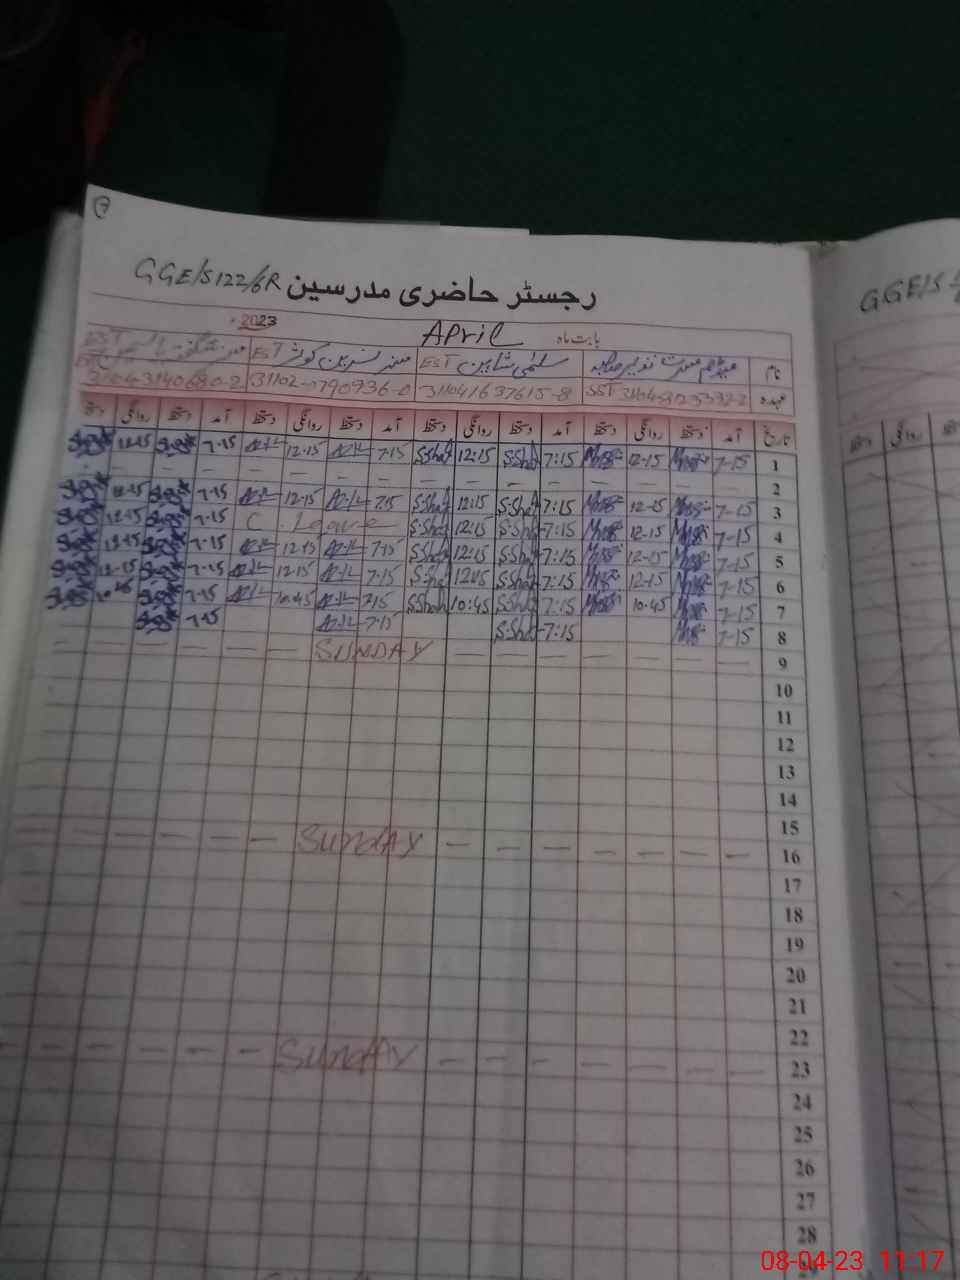 GGE/S 122/6R رجسٹر حاضری مدرسین
GGE/S
بابت ماہ April 2023
نام میڈم مسرت نذیر صاحبہ سلمٰی شاہین EST مسز نسرین کوثر EST مسز شگفتہ یاسمین EST
عہدہ SST 311041637615-8 31102-0790936-0 31104-3140680-2
تاریخ آمد دستخط روانگی دستخط آمد دستخط روانگی دستخط آمد دستخط روانگی دستخط آمد دستخط روانگی دستخط
روانگی
1 7-15 12-15 7:15 S.Sha 12:15 S.Sha 7.15 12.15 7.15 12.15
2 — — — — — — — — — — — —
3 7-15 12-15 7:15 S.Sha 12:15 S.Sha 7.15 12.15 7.15 12.15
4 7-15 12-15 7:15 S.Sha 12:15 S.Sha C. Leave 7.15 12.15
5 7-15 12-15 7:15 S.Sha 12:15 S.Sha 7.15 12.15 7.15 12.15
6 7-15 12-15 7:15 S.Sha 12:15 S.Sha 7.15 12.15 7.15 12.15
7 7-15 10.45 7:15 S.Sha 10:45 S.Shah 7.15 10.45 7.15
8 7-15 7:15 S.Sha 7.15 7.15
9 — — — SUNDAY — — —
10
11
12
13
14
15
16 — — — Sunday — — —
17
18
19
20
21
22
23 — — — Sunday — — —
24
25
26
27
28
08-04-23 11:17